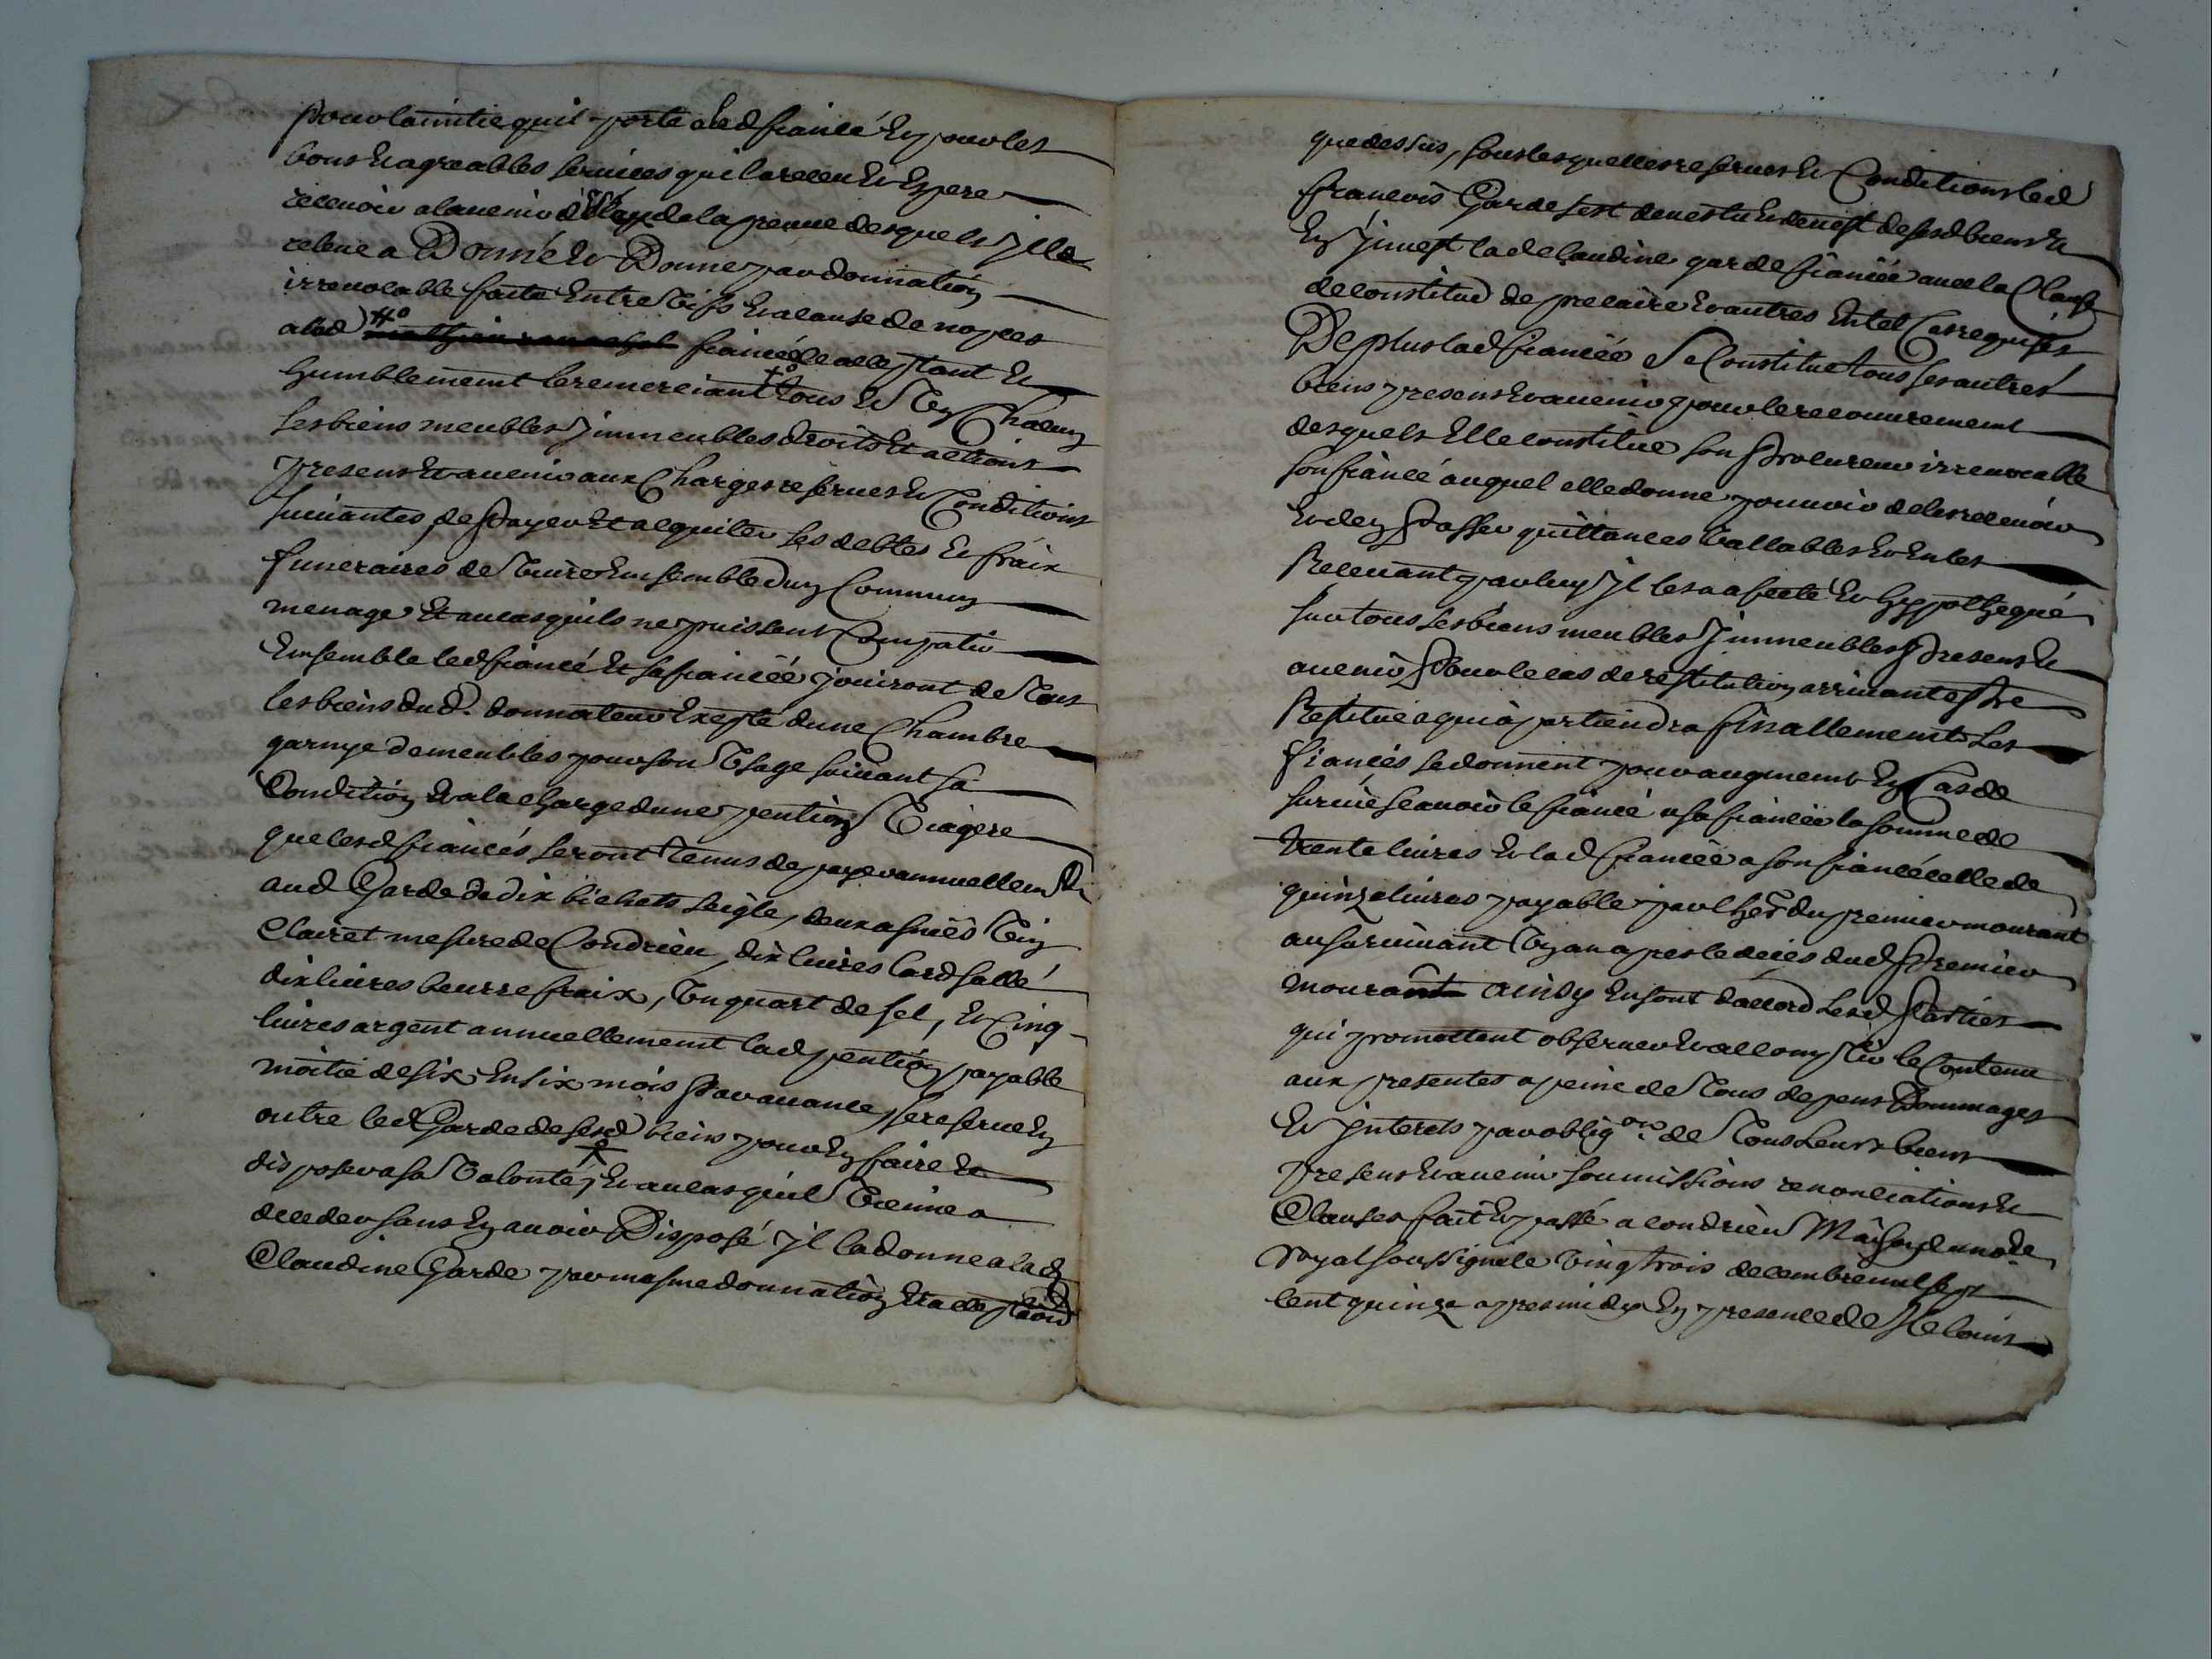 pour lamitie quil porte aud fiancé Et pour les
bons Et agreables services quil a receu Et Espere
recevoir a lavenir de la preuve desquels Il la
releve a Donné Et Donne par donnation
irrevocable faite Entre vifs Et a cause de nopces
alad fiancée acceptant Et
humblement le remerciant tous Et Un Chacun
ses biens meubles Immeubles droits Et actions
presens Et avenir aux Charges reserves Et Conditions
suivantes, de payer Et acquiter ses debtes Et fraix
funeraires de vivre Ensemble dun Commun
menage Et au cas quils ne puissent Compatir
Ensemble led fiancé Et sa fiancée jouiront de Tous
les biens dud. donnateur Exepté dune Chambre
garnye de meubles pour son Usage suivant sa
Condition Et a la charge dune pention Viagere
que lesd fiancés seront Tenus de payer annuellement
aud Garde de dix bichets seigle, deux asnées Vin
Clairet mesure de Condrieu, dix livres lard sallé
dix livres beurre fraix, Un quart de sel, Et Cinq
livres argent annuellement lad pention payable
moitie de six En six mois par avance, se reserve En
outre led Garde de sesd biens pour En faire Et
disposer a sa Volonté, Et au cas quil Vienne a
deceder sans En avoir Disposé Il la donne a lad
Claudine Garde par mesme donnation Et acceptaon
que dessus, sous lesquelles reserves Et Conditions led
francois Garde sest devestu Et devest de sesd biens Et
En Jnvest lad Claudine garde fiancée avec la Clause
de constitud de precaire Et autres En tel Cas requises
De plus lad fiancée Se Constitue tous ses autres
biens presens Et avenir pour le recouvrement
desquels Elle constitue son Procureur irrevocable
son fiancé auquel elle donne pouvoir de les recevoir
Et den Passer quittances Vallables Et En les
Recevant par luy Jl les a afecté Et hyppothequé
sur tous ses biens meubles Jmmeubles Presens Et
avenir Pour le cas de restitution arrivant Estre
Restitué a qui apartiendra finallement les
fiancés se donnent pour augment En Cas de
survie scavoir le fiancé a sa fiancée la somme de
trente livres Et lad fiancée a son fiancé celle de
quinze livres payable par lher du premier mourant
au survivant Un an apres le deces dud Premier
mourant ainsy En sont daccord lesd Parties
qui promettent observer Et accomplir le Contenu
aux presentes a peine de Tous depens Dommages
Et Jnterets par obligon de Tous Leurs biens
presens Et avenir soumissions renonciations Et
Clauses fait Et passé a Condrieu Maison du note
royal soussigné le Vingt trois decembre mil sept
cent quinze apres midy En presence de Sr Louis